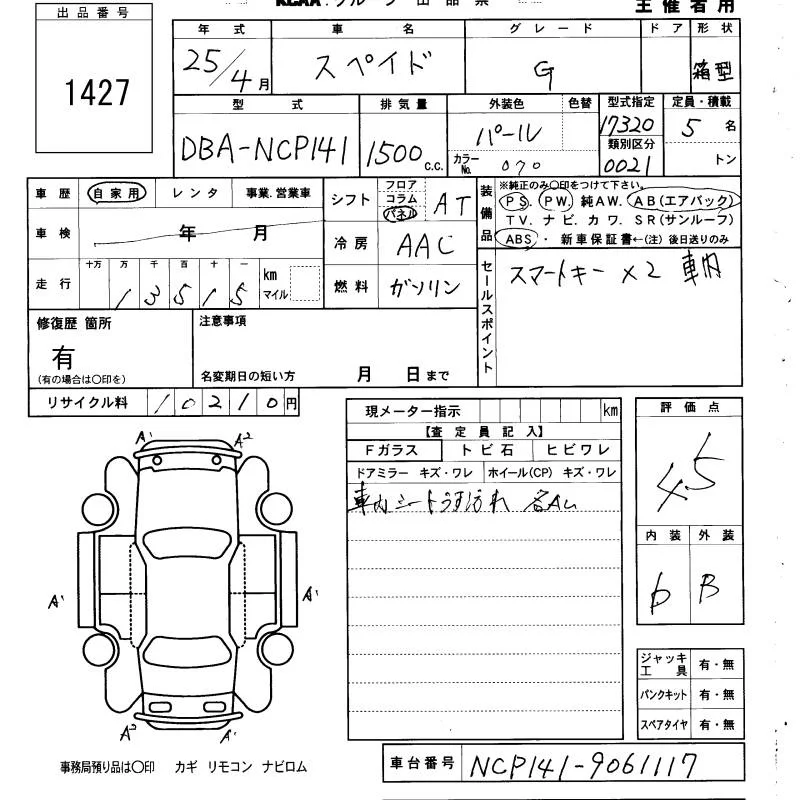 KCAA・グループ 出品票
主催者用
出品番号
1427
年式 車名 グレード ドア 形状
25/4月 スペイド G 箱型
型式 排気量 外装色 色替 型式指定 定員・積載
DBA-NCP141 1500 c.c. パール 17320 5名
カラーNo. 070 類別区分 0021 トン
車歴 自家用 レンタ 事業.営業車
車検 年 月
走行 十万 万 千 百 十 一 km マイル
13515
シフト フロア コラム パネル AT
冷房 AAC
燃料 ガソリン
装備品 ※純正のみ〇印をつけて下さい。
PS. PW. 純AW. AB(エアバック)
TV. ナビ. カワ. SR(サンルーフ)
ABS ・ 新車保証書←(注) 後日送りのみ
セールスポイント
スマートキー×2 車内
修復歴 箇所
有
(有の場合は〇印を)
注意事項
名変期日の短い方 月 日まで
リサイクル料 10210円
現メーター指示 km
【査定員記入】
Fガラス トビ石 ヒビワレ
ドアミラー キズ・ワレ ホイール(CP) キズ・ワレ
車内シートうす汚れ 各AU
評価点
4.5
内装 外装
B
A' A2
A' A'
A2 A'
ジャッキ工具 有・無
パンクキット 有・無
スペアタイヤ 有・無
事務局預り品は〇印 カギ リモコン ナビロム
車台番号 NCP141-9061117